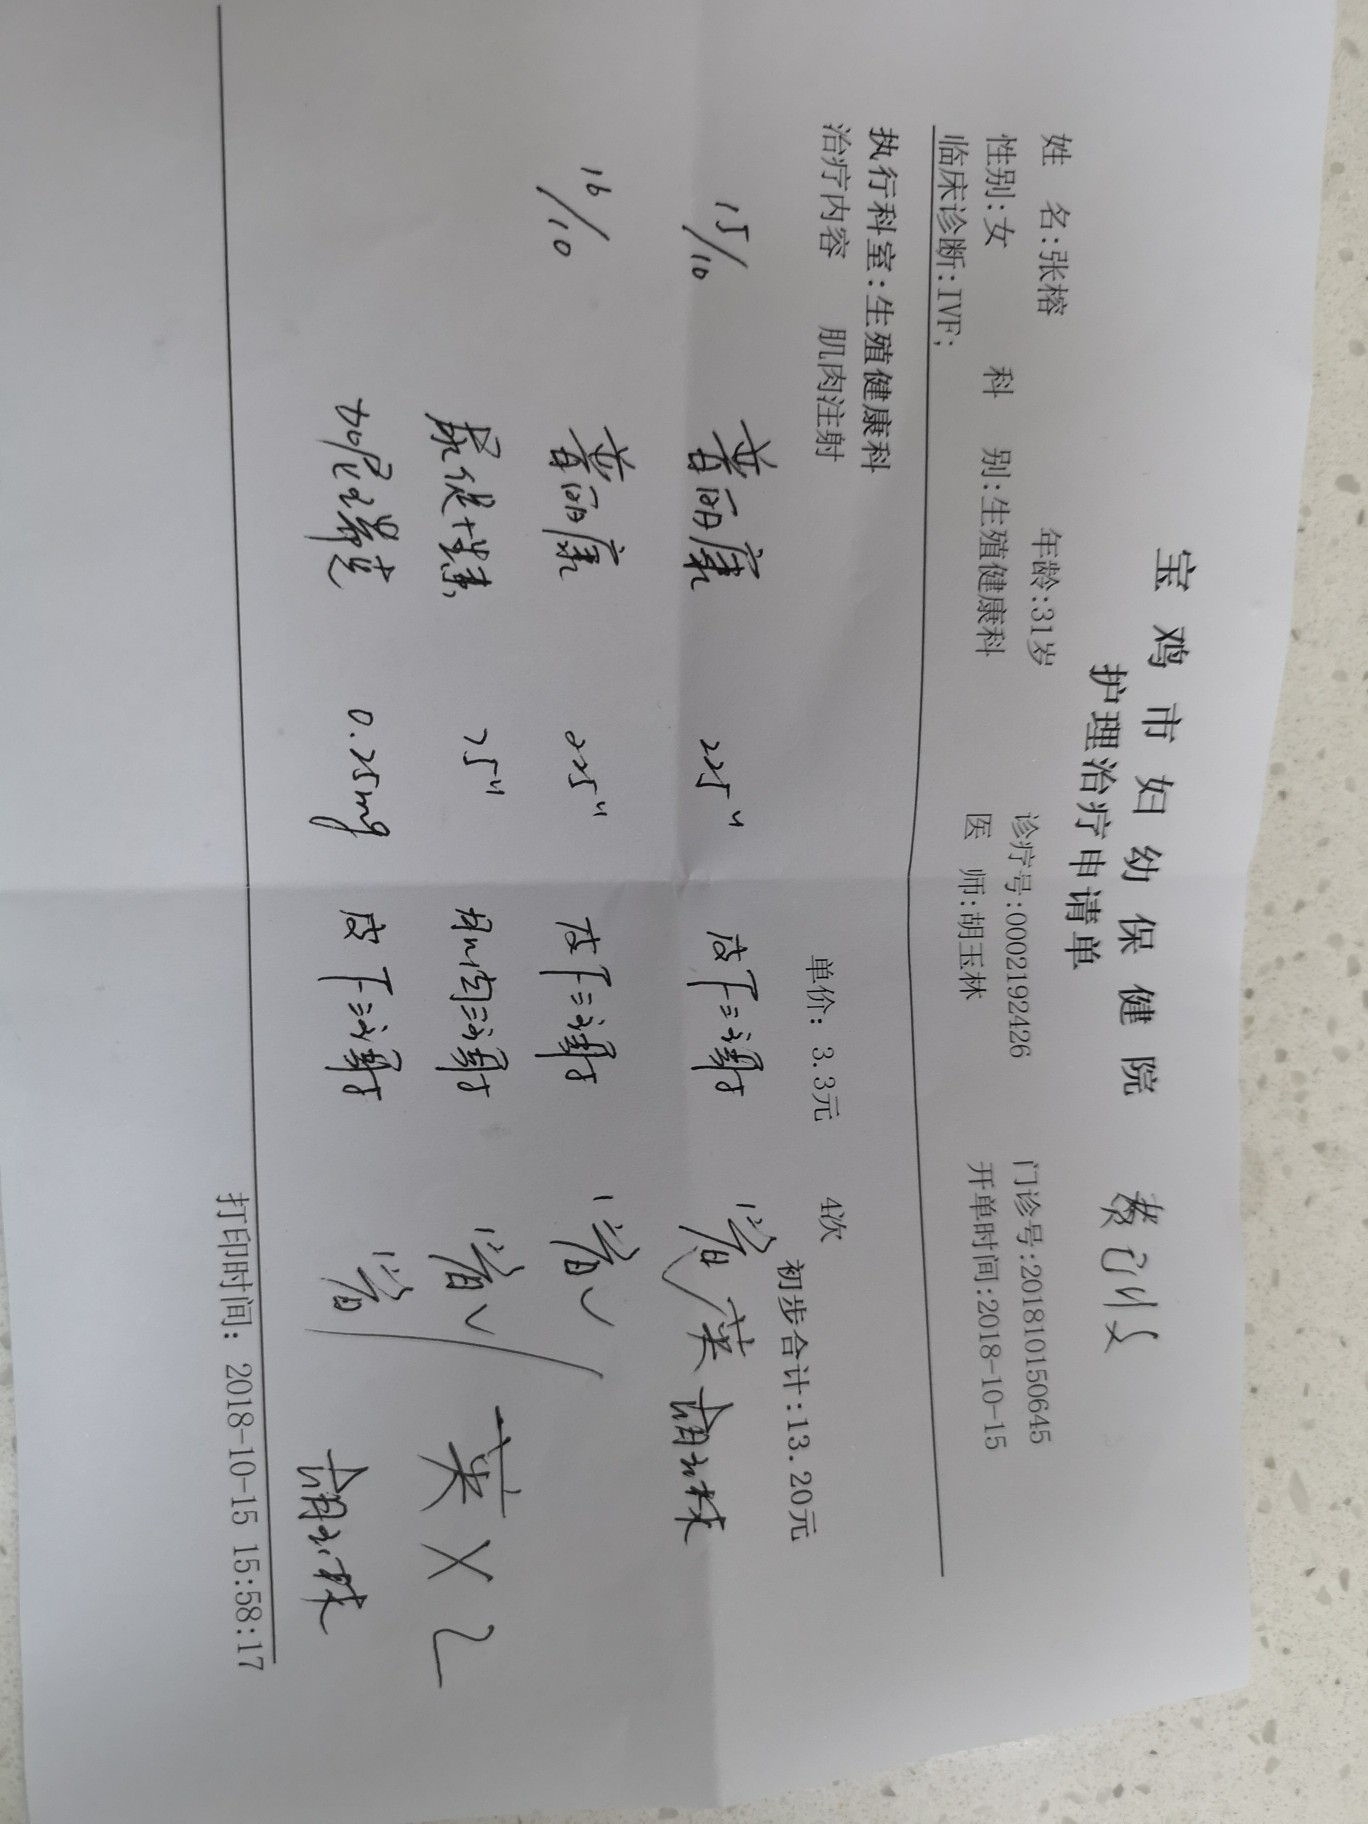 宝鸡市妇幼保健院
护理治疗申请单
姓 名:张榕 年龄:31岁 诊疗号:0002192426 门诊号:201810150645
性别:女 科 别:生殖健康科 医 师:胡玉林 开单时间:2018-10-15
临床诊断:IVF;
执行科室:生殖健康科
治疗内容 肌肉注射 单价: 3.3元 4次 初步合计:13.20元
15/10 普丽康 225u 皮下注射 1次/日 英 胡玉林
16/10 普丽康 225u 皮下注射 1次/日
尿促性素 75u 肌肉注射 1次/日
加尼瑞克 0.25mg 皮下注射 1次/日 英×2 胡玉林
打印时间: 2018-10-15 15:58:17